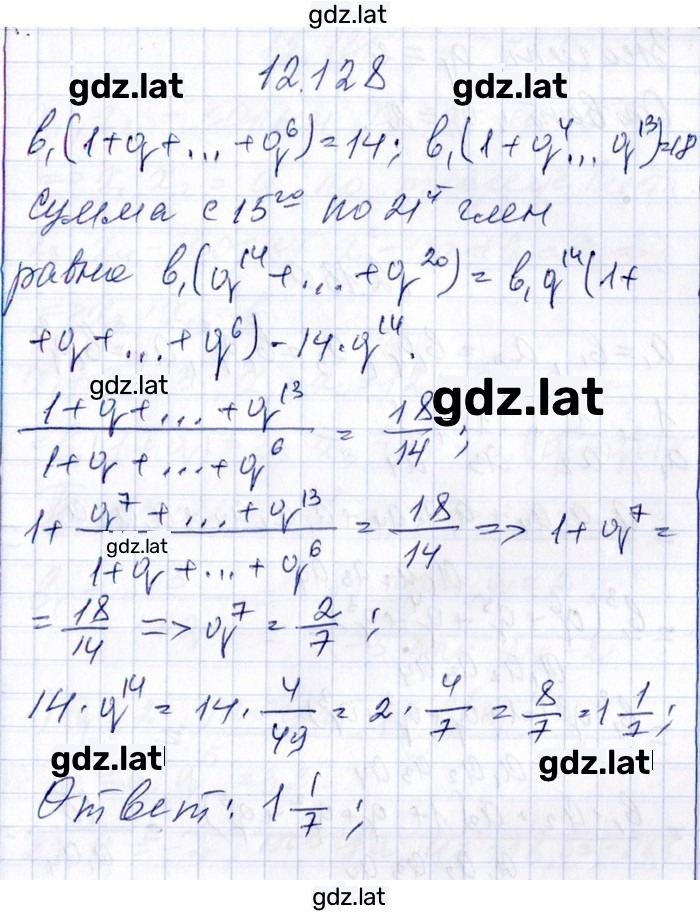 gdz.lat
12.128
gdz.lat gdz.lat
b₁(1+q+...+q⁶)=14; b₁(1+q⁴... q¹³)=18
Сумма с 15го по 21й член
равна b₁(q¹⁴+...+q²⁰) = b₁q¹⁴(1+
+q+...+q⁶) - 14·q¹⁴.
gdz.lat gdz.lat
(1+q+...+q¹³)/(1+q+...+q⁶) = 18/14;
1+ (q⁷+...+q¹³)/(1+q+...+q⁶) = 18/14 => 1+q⁷ =
gdz.lat
= 18/14 => q⁷ = 2/7;
14·q¹⁴ = 14·4/49 = 2·4/7 = 8/7 = 1 1/7;
gdz.lat gdz.lat
Ответ: 1 1/7;
gdz.lat